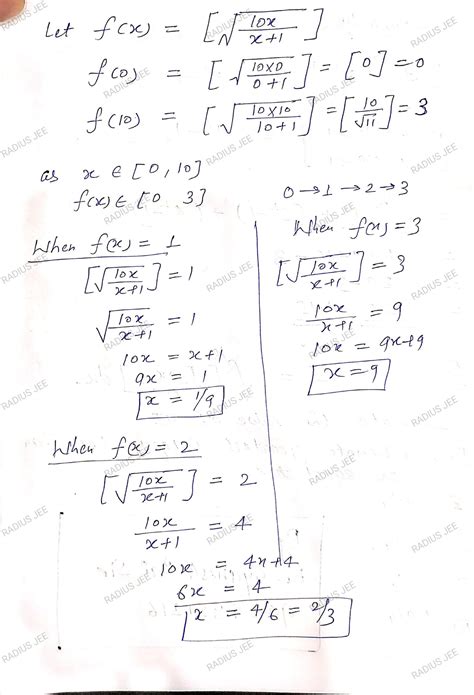 Let f(x) = [√(10x/(x+1))]
f(0) = [√((10×0)/(0+1))] = [0] = 0
f(10) = [√((10×10)/(10+1))] = [10/√11] = 3
as x ∈ [0, 10]
f(x) ∈ [0 3]
When f(x) = 1
[√(10x/(x+1))] = 1
√(10x/(x+1)) = 1
10x = x+1
9x = 1
x = 1/9
When f(x) = 2
[√(10x/(x+1))] = 2
10x/(x+1) = 4
10x = 4x+4
6x = 4
x = 4/6 = 2/3
0→1→2→3
When f(x) = 3
[√(10x/(x+1))] = 3
10x/(x+1) = 9
10x = 9x+9
x = 9
RADIUS JEE